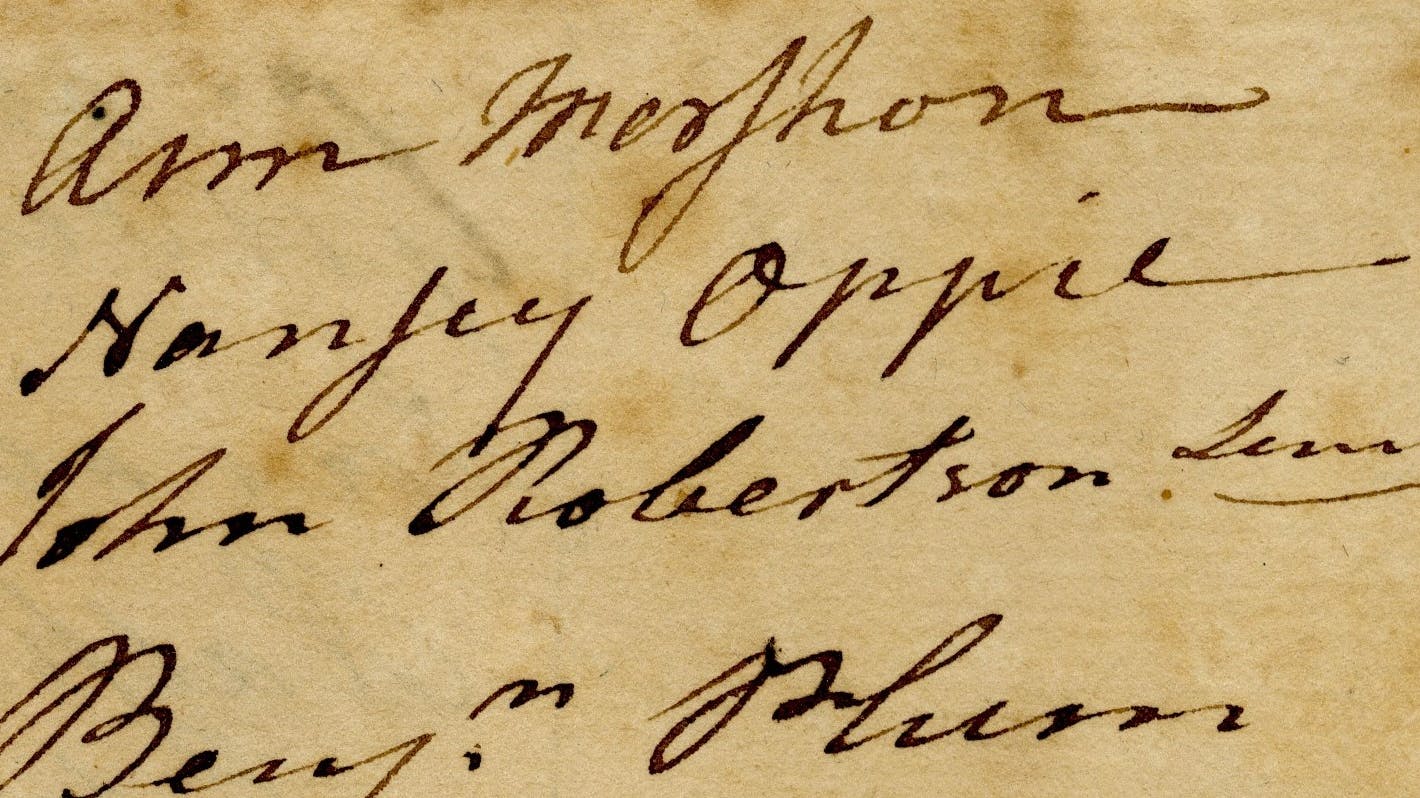 Ann Merſhon
Nanſey Oppie
John Robertson
Benj.ⁿ Plum